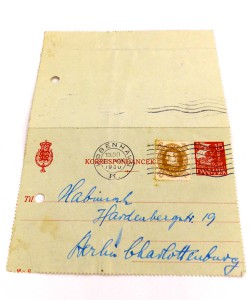 KØBENHAVN
1930
K
KORRESPONDANCEK
15
DANMARK
Til
Hardenbergstr. 19
Berlin Charlottenburg